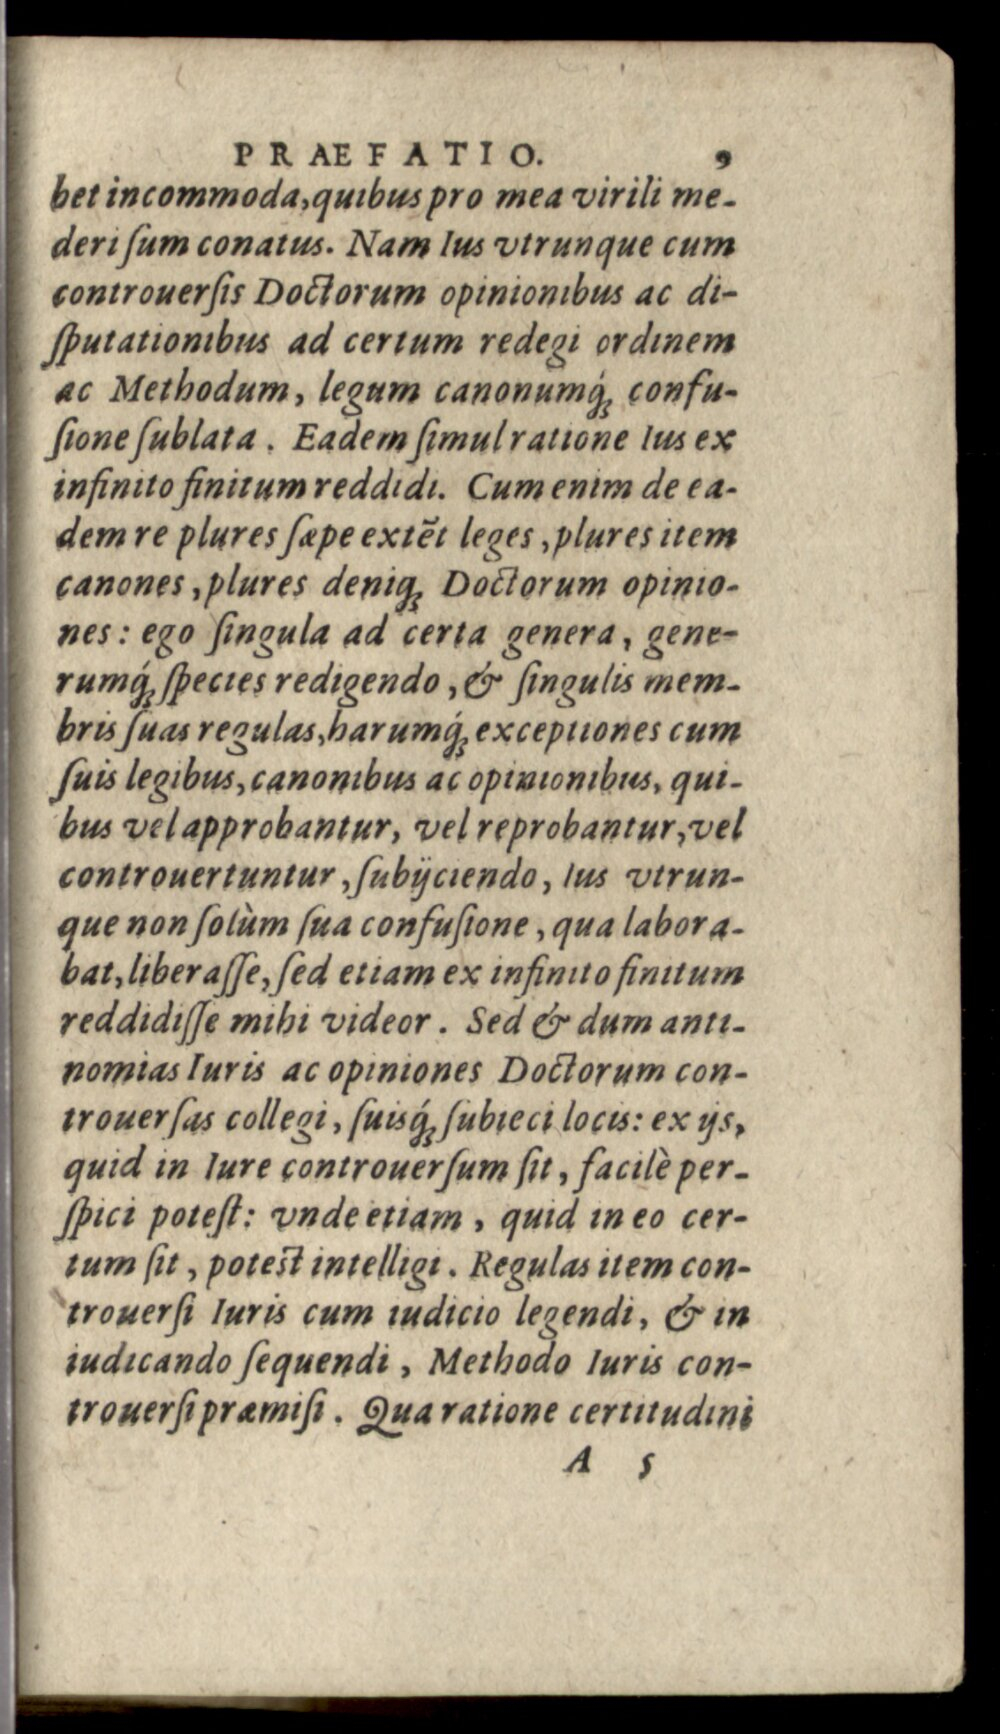 PRAEFATIO. 9
bet incommoda, quibus pro mea virili me-
deri ſum conatus. Nam Ius vtrunque cum
controuerſis Doctorum opinionibus ac di-
ſputationibus ad certum redegi ordinem
ac Methodum, legum canonumq́; confu-
ſione ſublata. Eadem ſimul ratione Ius ex
infinito finitum reddidi. Cum enim de ea-
dem re plures ſæpe extẽt leges, plures item
canones, plures deniq; Doctorum opinio-
nes: ego ſingula ad certa genera, gene-
rumq́; ſpecies redigendo, & ſingulis mem-
bris ſuas regulas, harumq́; exceptiones cum
ſuis legibus, canonibus ac opinionibus, qui-
bus vel approbantur, vel reprobantur, vel
controuertuntur, ſubijciendo, Ius vtrun-
que non ſolùm ſua confuſione, qua labora-
bat, liberaſſe, ſed etiam ex infinito finitum
reddidiſſe mihi videor. Sed & dum anti-
nomias Iuris ac opiniones Doctorum con-
trouerſas collegi, ſuisq́; ſubieci locis: ex ijs,
quid in Iure controuerſum ſit, facilè per-
ſpici poteſt: vnde etiam, quid in eo cer-
tum ſit, poteſt intelligi. Regulas item con-
trouerſi Iuris cum iudicio legendi, & in
iudicando ſequendi, Methodo Iuris con-
trouerſi præmiſi. Qua ratione certitudini
A 5